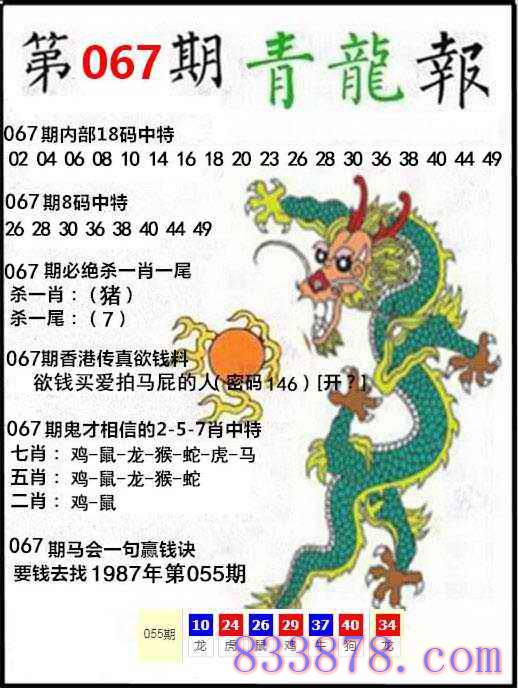 第067期 青龍報
067期内部18码中特
02 04 06 08 10 14 16 18 20 23 26 28 30 36 38 40 44 49
067期8码中特
26 28 30 36 38 40 44 49
067期必绝杀一肖一尾
杀一肖：（猪）
杀一尾：（7）
067期香港传真欲钱料
欲钱买爱拍马屁的人（密码146）[开？]
067期鬼才相信的2-5-7肖中特
七肖：鸡-鼠-龙-猴-蛇-虎-马
五肖：鸡-鼠-龙-猴-蛇
二肖：鸡-鼠
067期马会一句赢钱诀
要钱去找1987年第055期
055期 10 24 26 29 37 40 34
龙 虎 鼠 鸡 牛 狗 龙
833878.com